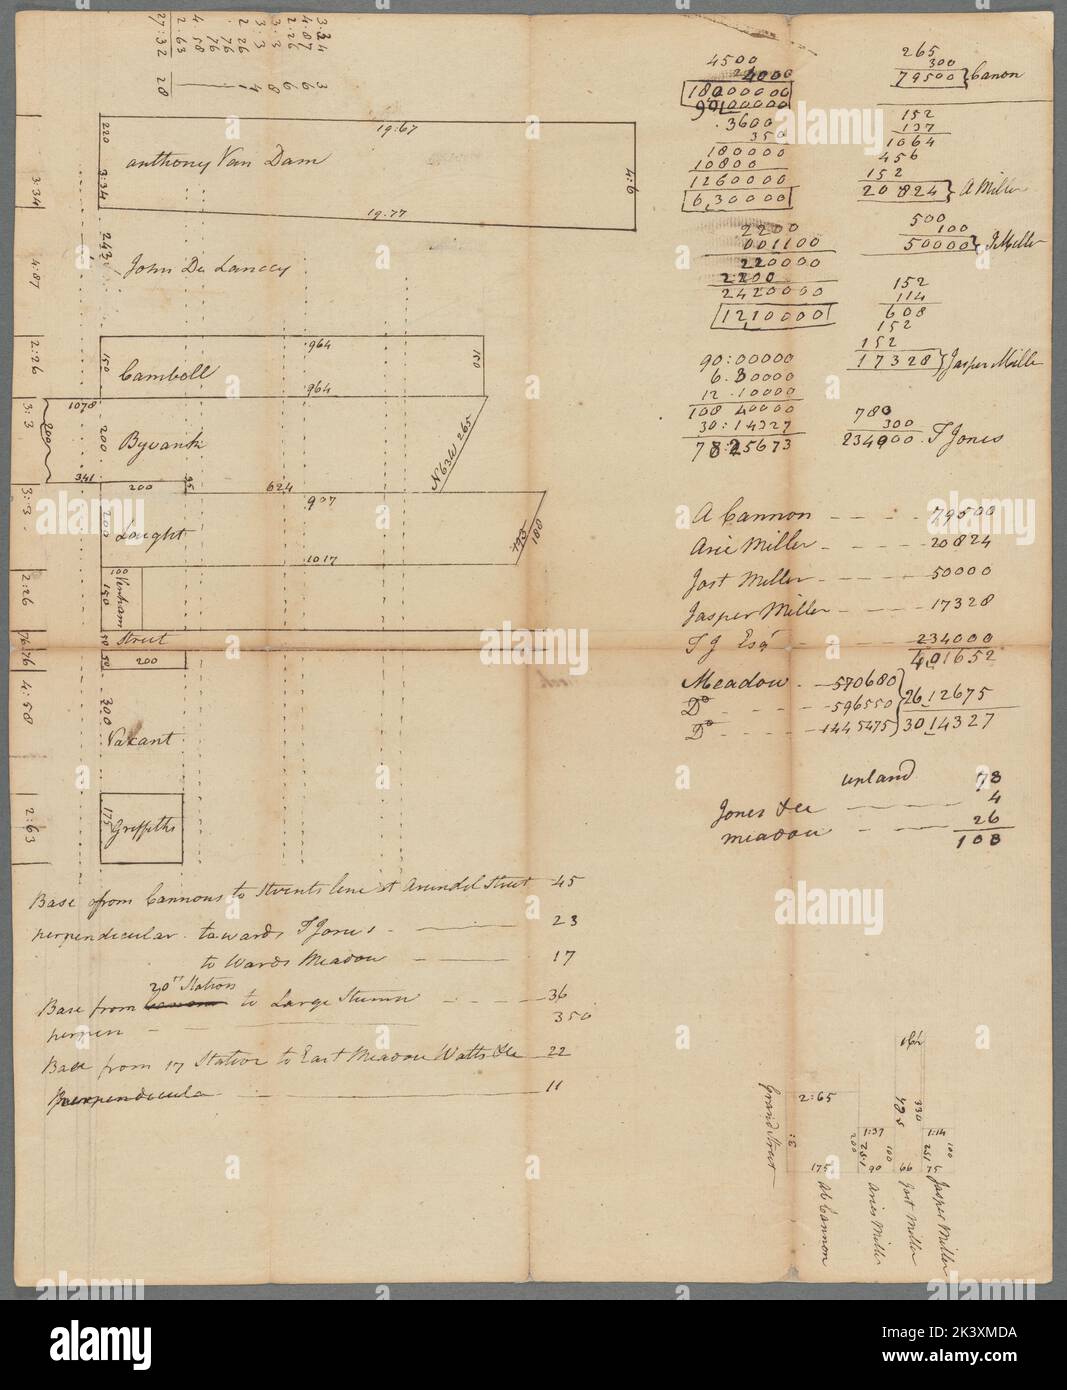 3:34 3
4:87 6
2:26 6
3:3 8
3:3 4
2 26
76
76
4 58
2:63
27:32 28
220
19:67
Anthony Van Dam
3:34
4:6
19:77
3:34
243
John De Lancey
4:87
964
150
Cambell
150
964
2:26
1078
3:3
200
200
Byvank
N 63 W 265
341
200
95
624
907
3:3
200
Lought
193
180
1017
100
2:26
150
Vanham
50
Street
76:76
50
200
4:58
300
Vacant
2:63
175
Griffiths
Base from Cannons to Stvents line at Arundel Street 45
perpendicular towards T Jones 23
to wards Meadow 17
20th Station
Base from to Large Stump 36
perpen 350
Base from 17 Station to East Meadow Watts &c 22
Perpendicula 11
4500
4000
18000000
90100000
3600
350
180000
10800
1260000
6,30000
2200
001100
220000
2200
2420000
1210000
90:00000
6.30000
12.10000
108 40000
30:14327
78:25673
265
300
79500 Canon
152
137
1064
456
152
20824 A Miller
500
100
50000 J Miller
152
114
608
152
152
17328 Jasper Miller
780
300
234000. T Jones
A Cannon 79500
Arie Miller 20824
Jost Miller 50000
Jasper Miller 17328
T J Esqr 234000
401652
Meadow 570680
Do 596550 2612675
Do 1445475 3014327
upland 78
Jones &c 4
meadow 26
108
Grand Street
2:65
3:
175
Ab Cannon
1:37
200
251
100
90
Aries Miller
495
330
66
Jost Miller
1:14
251
100
75
Jasper Miller
alamy
Image ID: 2K3XMDA
www.alamy.com